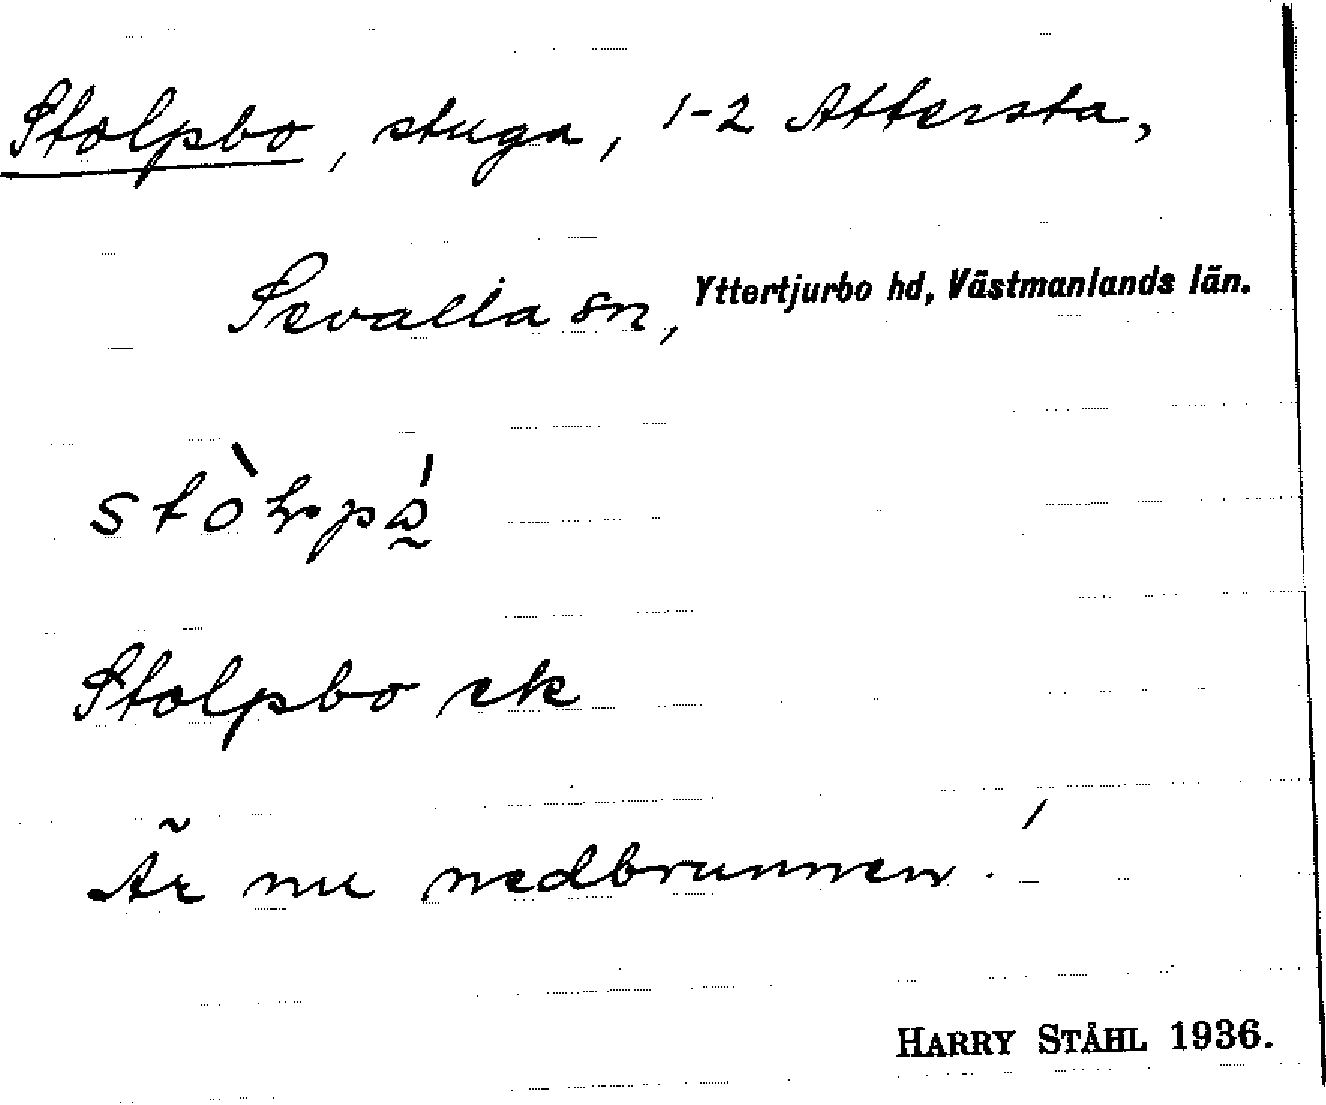 Stolpbo, stuga, 1-2 Attersta,
Sevalla sn, Yttertjurbo hd, Västmanlands län.
Stolpbo ek
Är nu nedbrunnen.
HARRY STÅHL 1936.